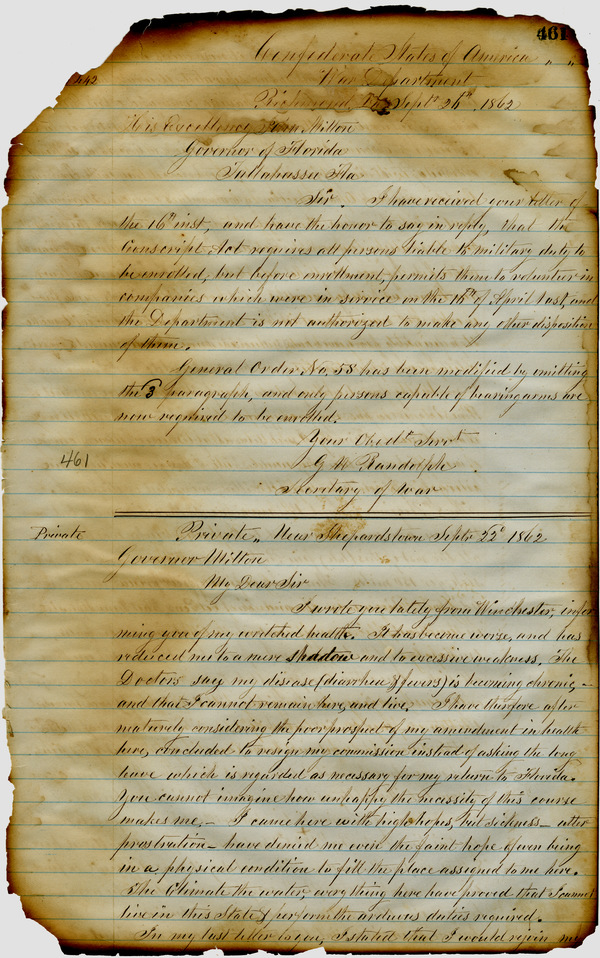 461
Confederate States of America " "
442
War Department
Richmond, Va Sept. 26th, 1862
His Excellency John Milton
Governor of Florida
Tallahassee Fla
Sir. I have received your letter of
the 16th inst, and have the honor to say in reply, that the
Conscript Act requires all persons liable to military duty to
be enrolled, but before enrollment, permits them to volunteer in
companies which were in service on the 16th of April last, and
the Department is not authorized to make any other disposition
of them.
General Order No, 58 has been modified by omitting
the 3 paragraph, and only persons capable of bearing arms are
now required to be enrolled.
Your Obedt Servt
461
G W Randolph
Secretary of War
Private
Private, Near Shepardstown Septr 22d 1862
Governor Milton
My Dear Sir
I wrote you lately from Winchester, infor
ming you of my wretched health. It has become worse, and has
reduced me to a mere shadow and to excessive weakness. The
Doctors say my disease (diarrhea & fevers) is becoming chronic -
and that I cannot remain here, and live. I have therefore after
maturely considering the poor prospect of my amendment in health
here, concluded to resign my commission instead of asking the long
leave which is regarded as necessary for my return to Florida.
You cannot imagine how unhappy the necessity of this course
makes me. - I came here with high hopes, but sickness - utter
prostration - have denied me even the faint hope of even being
in a physical condition to fill the place assigned to me here.
The Climate the water, everything here have proved that I cannot
live in this State & perform the arduous duties required.
In my last letter to you, I stated that I would rejoin my